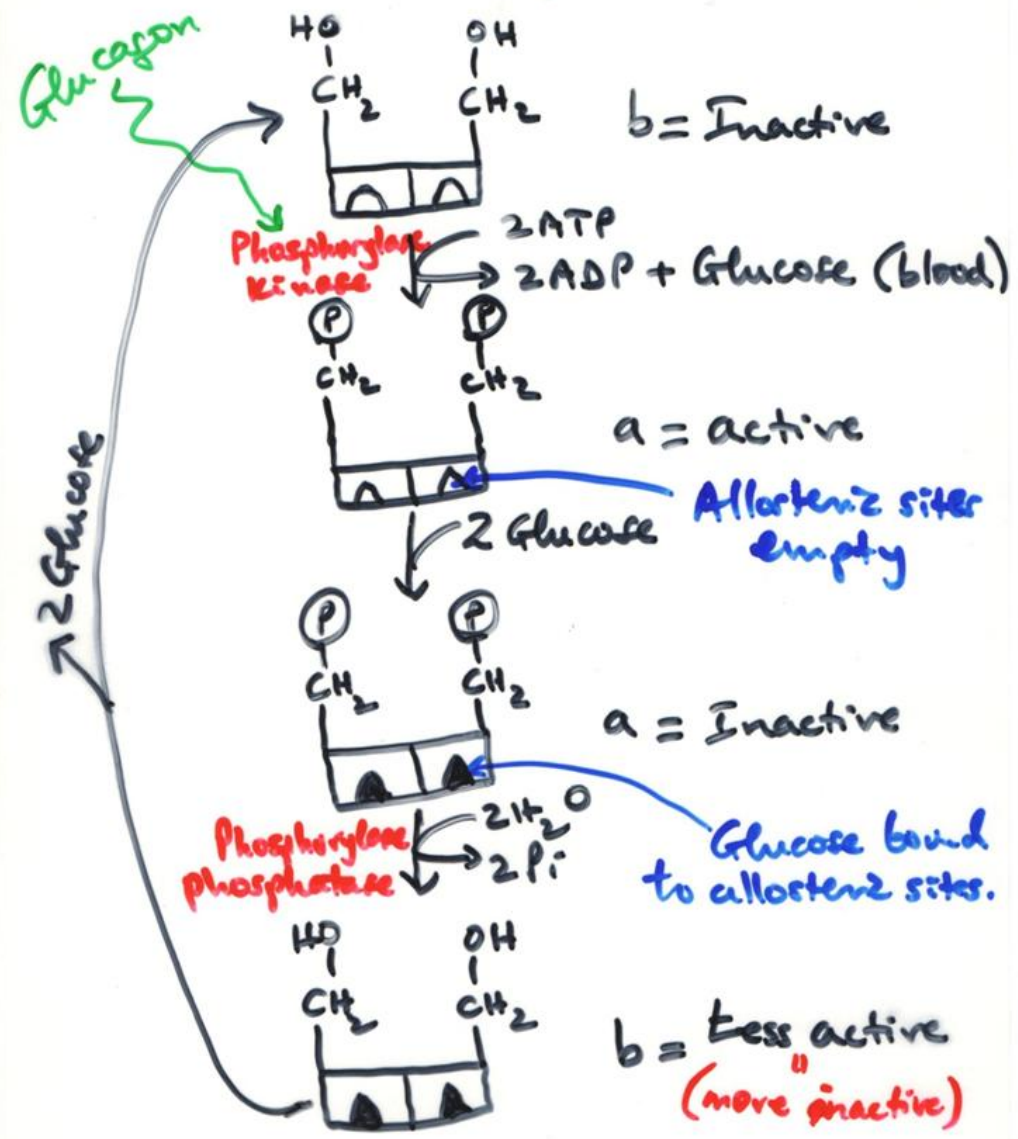 Glucagon
HO OH
CH2 CH2
b = Inactive
Phosphorylase
kinase
2ATP
2ADP + Glucose (blood)
P P
CH2 CH2
a = active
Allosteric sites
empty
2 Glucose
2 Glucose
P P
CH2 CH2
a = Inactive
Glucose bound
to allosteric sites.
Phosphorylase
phosphatase
2H2O
2Pi
HO OH
CH2 CH2
b = Less active
"
(more inactive)